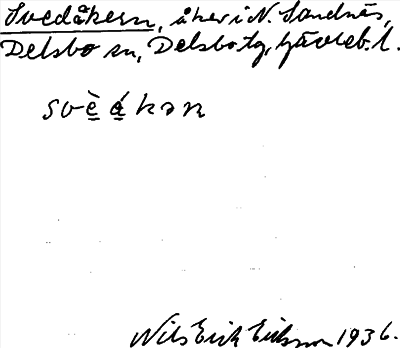 Svedåkern, åker i N. Sandnäs,
Delsbo sn, Delsbo tg, Gävleb. l.
svè̱ á̱kən
Nils Erik Eriksson 1936.